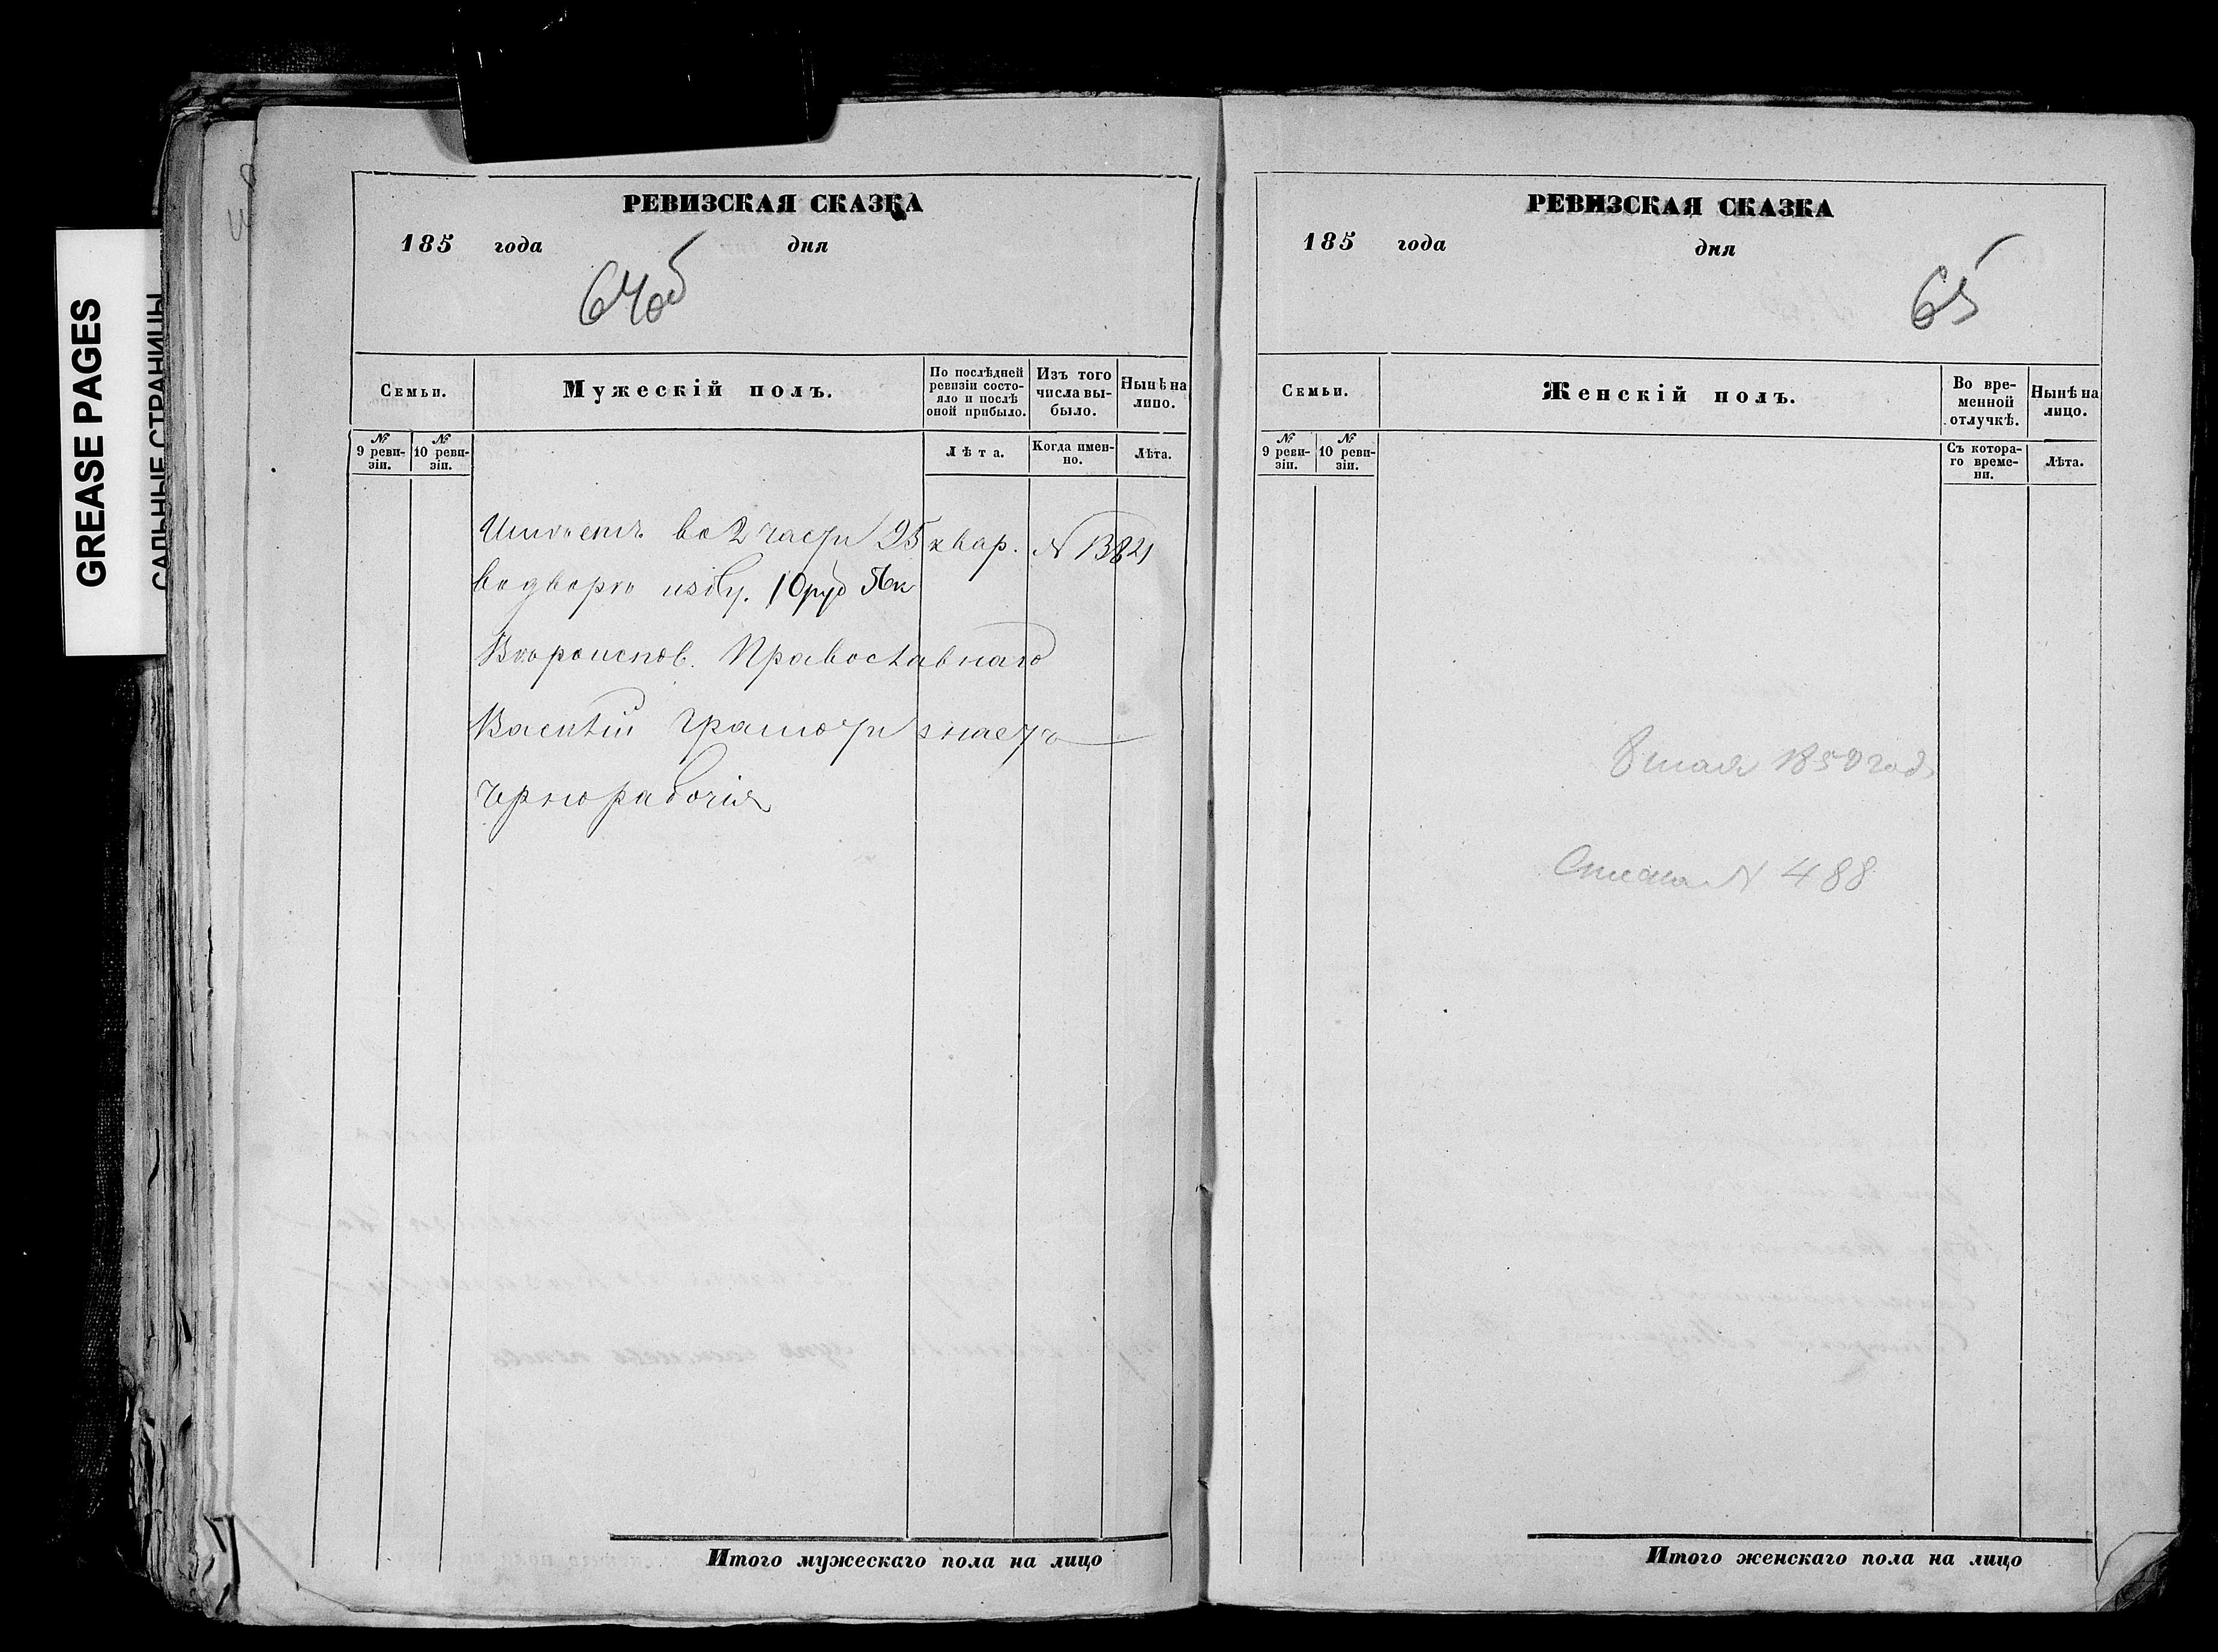 GREASE PAGES
САЛЬНЫЕ СТРАНИЦЫ
РЕВИЗСКАЯ СКАЗКА
185 года дня
64об
Семьи.
Мужескій полъ.
По послѣдней ревизіи состояло и послѣ оной прибыло.
Изъ того числа выбыло.
Нынѣ на лицо.
№ 9 ревизіи.
№ 10 ревизіи.
Лѣта.
Когда именно.
Лѣта.
во 2 части 95 квар. N 1382
10 руб
Вѣроисповѣ. Православнаго
Василій грамоти знаетъ
Чернорабочія
Итого мужескаго пола на лицо
РЕВИЗСКАЯ СКАЗКА
185 года дня
65
Семьи.
Женскій полъ.
Во временной отлучкѣ.
Нынѣ на лицо.
№ 9 ревизіи.
№ 10 ревизіи.
Съ котораго времени.
Лѣта.
8 мая 1858 год
N 488
Итого женскаго пола на лицо